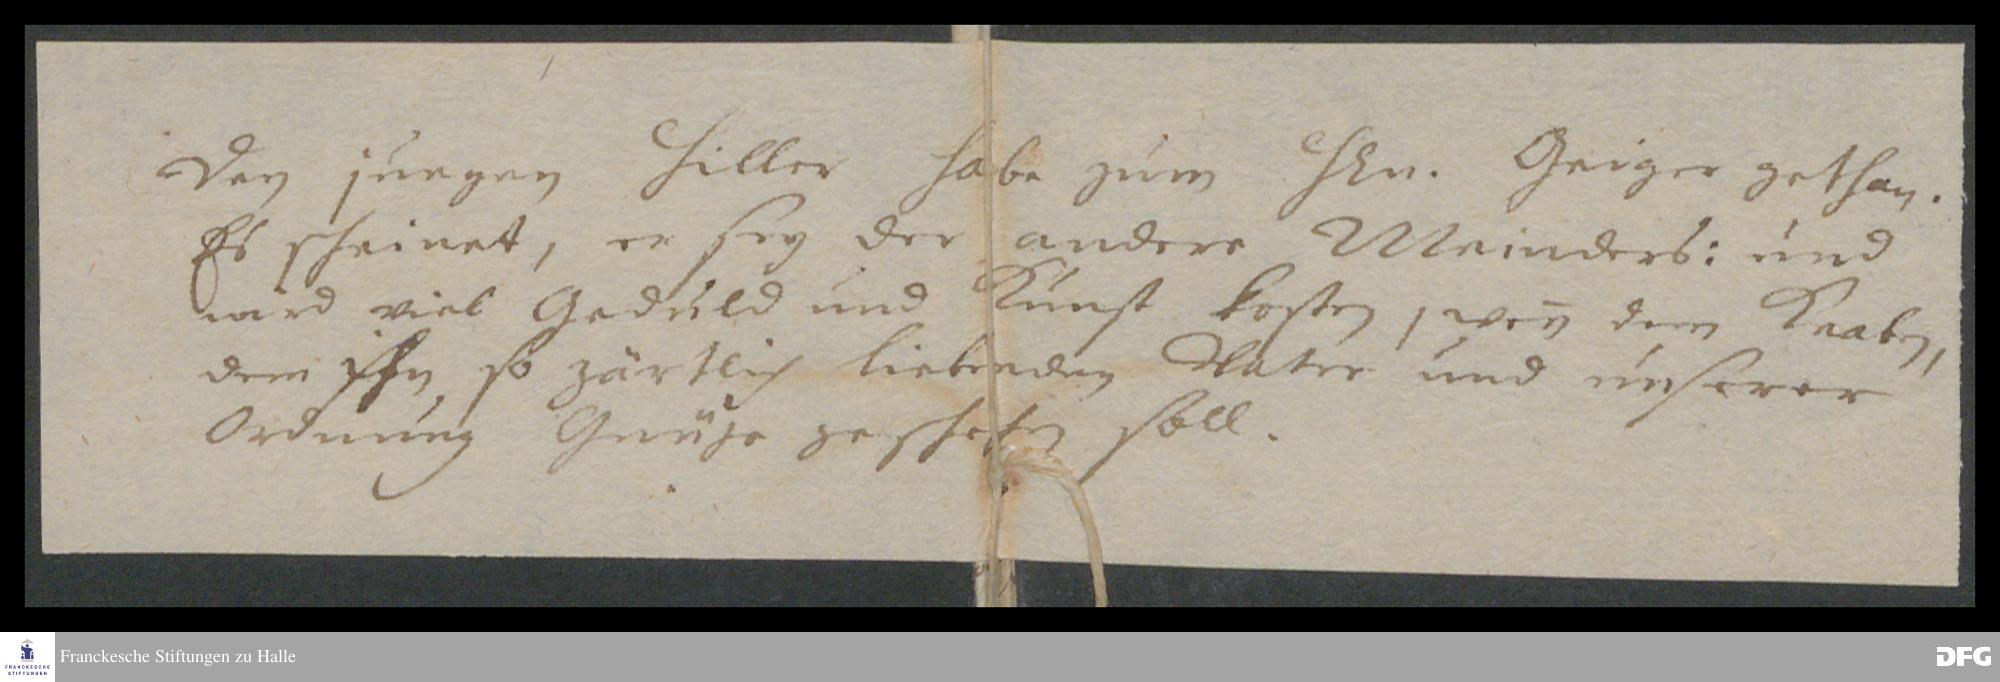 Den jungen Hiller habe zum HEn. Geiger gethan.
Es scheinet, er sey der andere Meinders: und
wird viel Geduld und Kunst kosten, wen̄ dem Knaben,
dem ihn so zärtlich liebenden Vater und unserer
Ordnung Gnüge geschehen soll.
FRANCKESCHE
STIFTUNGEN
Franckesche Stiftungen zu Halle
DFG